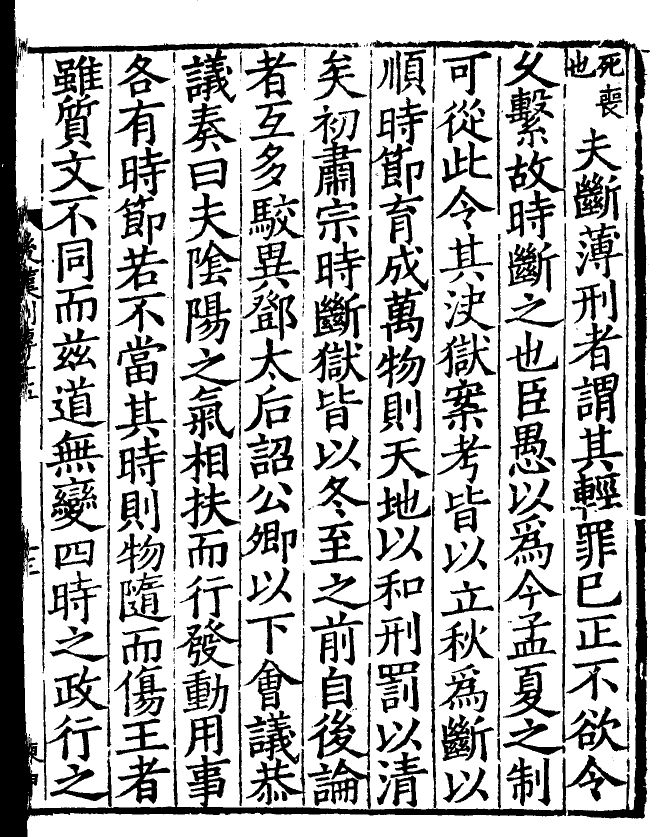 死喪也 夫斷薄刑者謂其輕罪已正不欲令
乆繫故時斷之也臣愚以爲今孟夏之制
可從此令其決獄案考皆以立秋爲斷以
順時節育成萬物則天地以和刑罰以清
矣初肅宗時斷獄皆以冬至之前自後論
者互多駮異鄧太后詔公卿以下會議恭
議奏曰夫陰陽之氣相扶而行發動用事
各有時節若不當其時則物隨而傷王者
雖質文不同而茲道無變四時之政行之